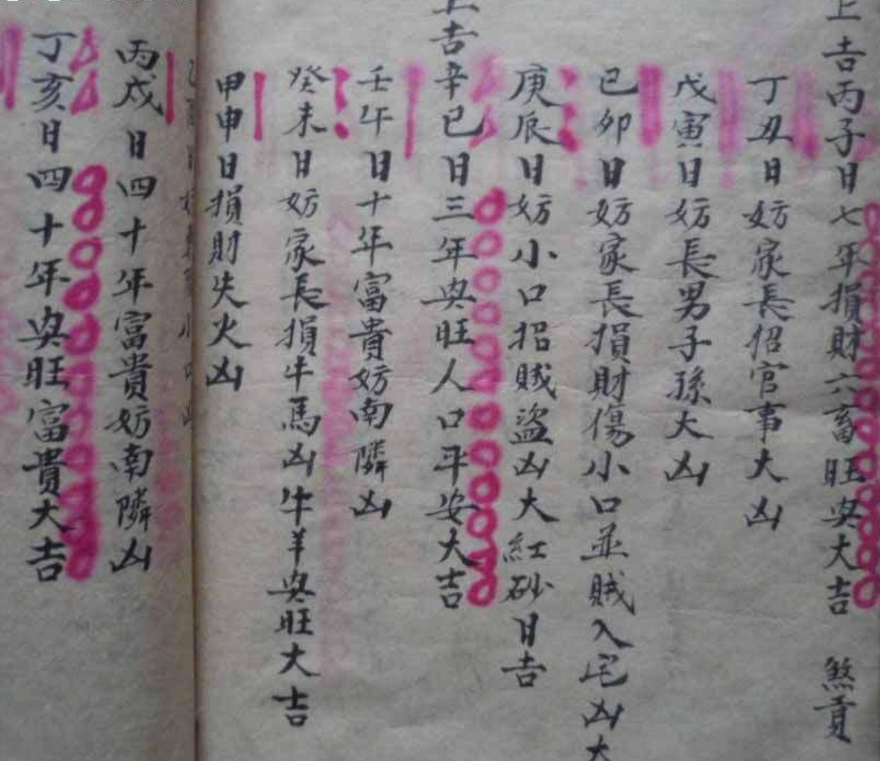 上吉丙子日七年損財六畜旺兴大吉 煞貢
丁丑日妨家長招官事大凶
戊寅日妨長男子孫大凶
己卯日妨家長損財傷小口並賊入宅凶大
庚辰日妨小口招賊盗凶大紅砂日吉
上吉辛巳日三年兴旺人口平安大吉
壬午日十年富貴妨南隣凶
癸未日妨家長損牛馬凶牛羊兴旺大吉
甲申日損財失火凶
丙戌日四十年富貴妨南隣凶
丁亥日四十年兴旺富貴大吉